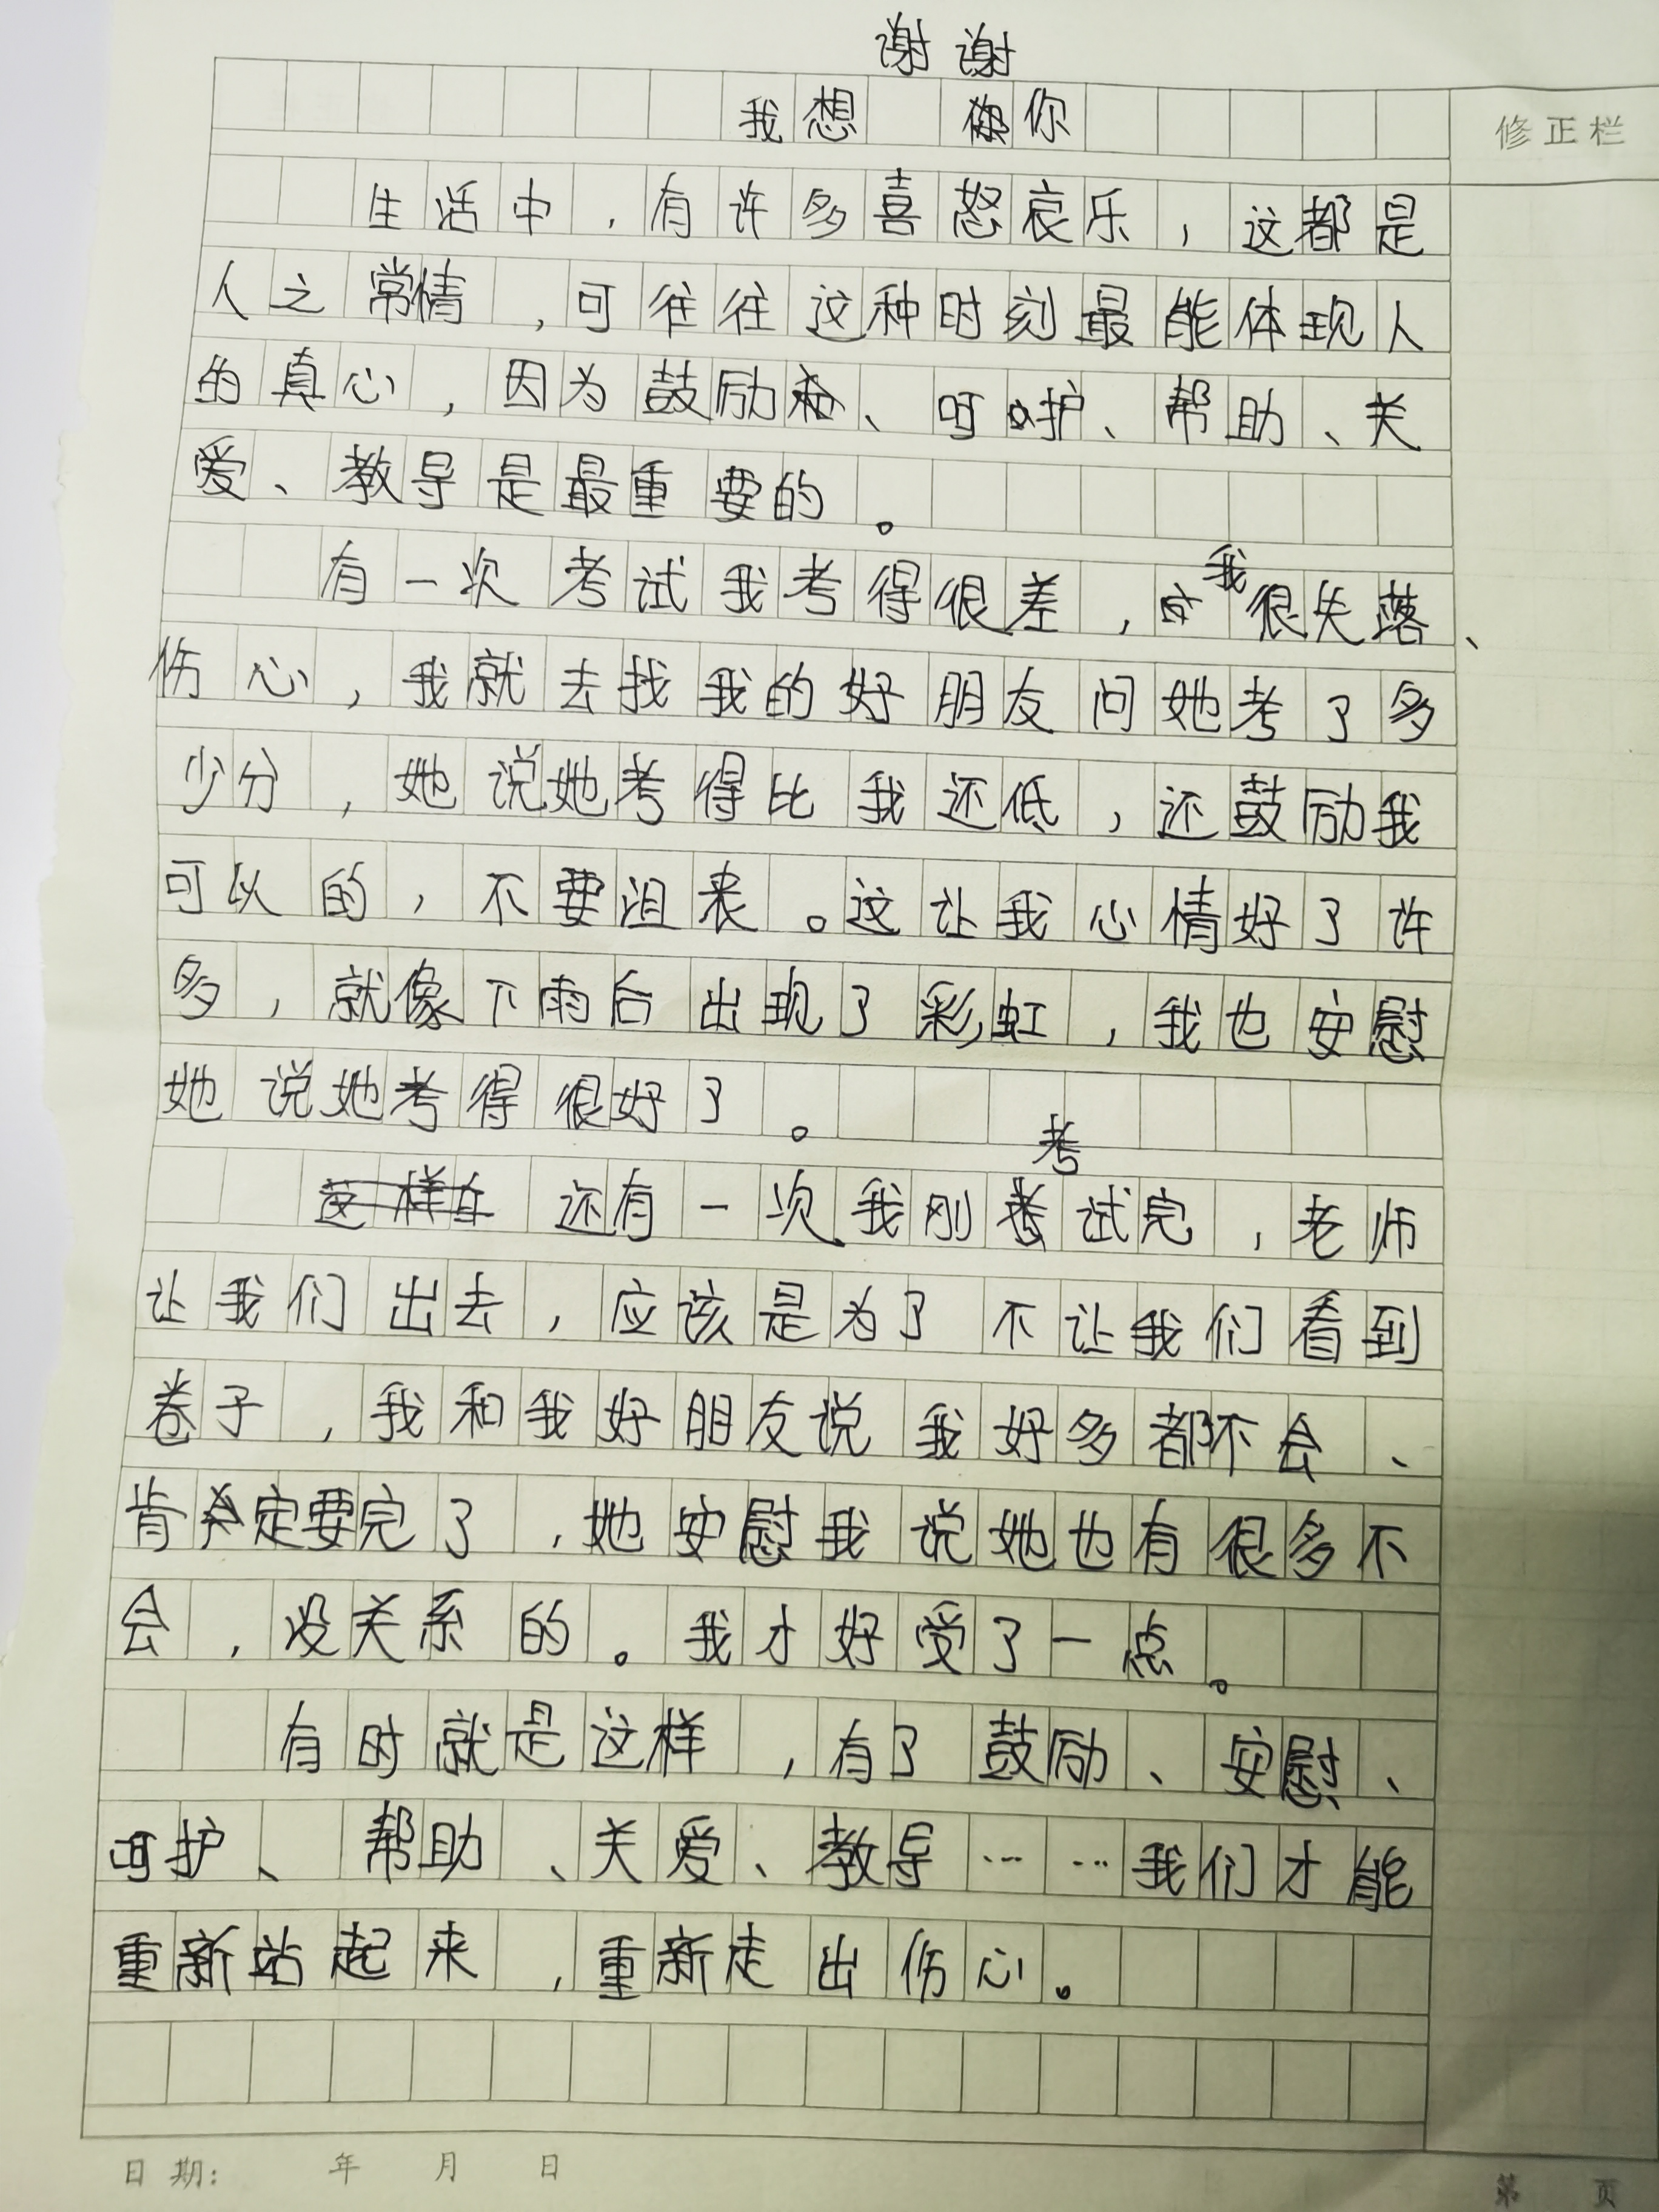 谢谢
我想 你
修正栏
生活中，有许多喜怒哀乐，这都是
人之常情，可往往这种时刻最能体现人
的真心，因为鼓励、呵护、帮助、关
爱、教导是最重要的。
有一次考试我考得很差，我很失落、
伤心，我就去找我的好朋友问她考了多
少分，她说她考得比我还低，还鼓励我
可以的，不要沮丧。这让我心情好了许
多，就像下雨后出现了彩虹，我也安慰
她说她考得很好了。
考
这样在还有一次我刚试完，老师
让我们出去，应该是为了不让我们看到
卷子，我和我好朋友说我好多都不会、
肯定要完了，她安慰我说她也有很多不
会，没关系的。我才好受了一点。
有时就是这样，有了鼓励、安慰、
呵护、帮助、关爱、教导……我们才能
重新站起来，重新走出伤心。
日期： 年 月 日
第 页